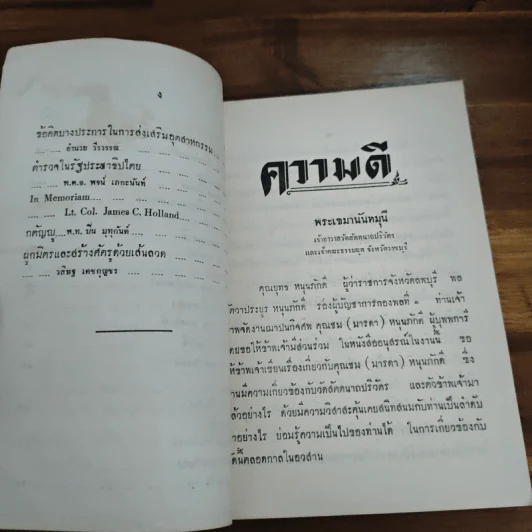 ง
ข้อคิดบางประการในการส่งเสริมอุตสาหกรรม ...
อำนวย วีรวรรณ .... .... ....
ตำรวจในรัฐประชาธิปไตย .... .... ....
.... .... พ.ต.อ. พจน์ เภกะนันท์ .... ....
In Memoriam .... .... .... ....
.... .... Lt. Col. James C. Holland .... ....
กตัญญู .... พ.ท. ปิ่น มุทุกันต์ .... ....
ผูกมิตรและสร้างศัตรูด้วยเส้นลวด
.... .... วสิษฐ เดชกุญชร .... ....
ความดี
พระเขมานันทมุนี
เจ้าอาวาสวัดสัตตนาถปริวัตร
และเจ้าคณะธรรมยุต จังหวัดราชบุรี
คุณยุทธ หนุนภักดี ผู้ว่าราชการจังหวัดลพบุรี พล
ตวาประยูร หนุนภักดี รองผู้บัญชาการกองพลที่ ท่านเจ้า
ภาพจัดงานฌาปนกิจศพ คุณชม (มารดา) หนุนภักดี ผู้บุพพการี
ขอให้ข้าพเจ้ามีส่วนร่วม ในหนังสืออนุสรณ์ในงานนี้ ขอ
ให้ข้าพเจ้าเขียนเรื่องเกี่ยวกับคุณชม (มารดา) หนุนภักดี ซึ่ง
านมีความเกี่ยวข้องกับวัดสัตตนาถปริวัตร และตัวข้าพเจ้ามา
ล้วอย่างไร ด้วยมีความวิสาสะคุ้นเคยสนิทสนมกับท่านเป็นลำดับ
าอย่างไร ย่อมรู้ความเป็นไปของท่านได้ ในการเกี่ยวข้องกับ
ตลอดกาลในอวสาน